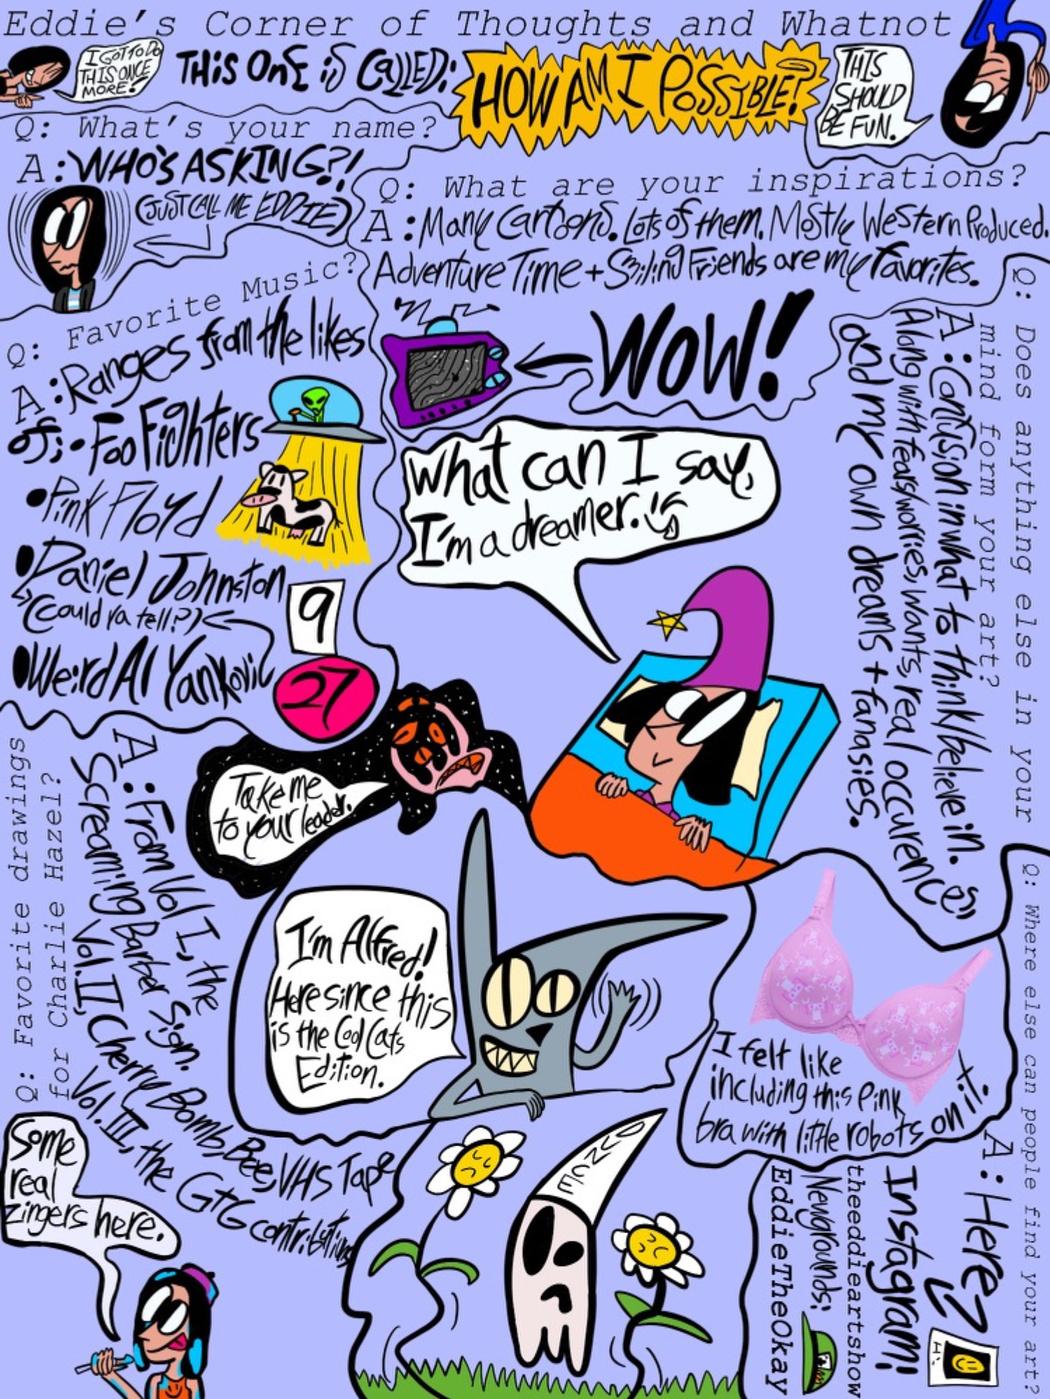 Eddie's Corner of Thoughts and Whatnot
I GOT TO DO
THIS ONCE
MORE!
THIS ONE iS CALLED:
HOW AM I POSSIBLE?
THIS
SHOULD
BE FUN.
Q: What's your name?
A: WHO'S ASKING?!
(JUST CALL ME EDDIE)
Q: What are your inspirations?
A: Many Cartoons. Lots of them. Mostly Western Produced.
Adventure Time + Smiling Friends are my favorites.
WOW!
Q: Favorite Music?
A: Ranges from the likes
of:
• Foo Fighters
• Pink Floyd
• Daniel Johnston
(Could ya tell?)
• Weird Al Yankovic
9
27
What can I say,
I'm a dreamer.
Q: Does anything else in your
mind form your art?
A: Confusion in what to think/believe in.
Along with fears/worries, wants, real occurences
and my own dreams + fanasies.
Take me
to your leader.
Q: Favorite drawings
for Charlie Hazel?
A: From Vol I, the
Screaming Barber Sign.
Vol. II, Cherry Bomb Bee, VHS Tape
Vol. III, the GtG contribution
Some
real
zingers here.
I'm Alfred!
Here since this
is the Cool Cats
Edition.
I felt like
including this pink
bra with little robots on it.
DUNCE
Q: Where else can people find your art?
A: Here
Instagram:
theeddieartshow
Newgrounds:
EddieTheOkay
Hi